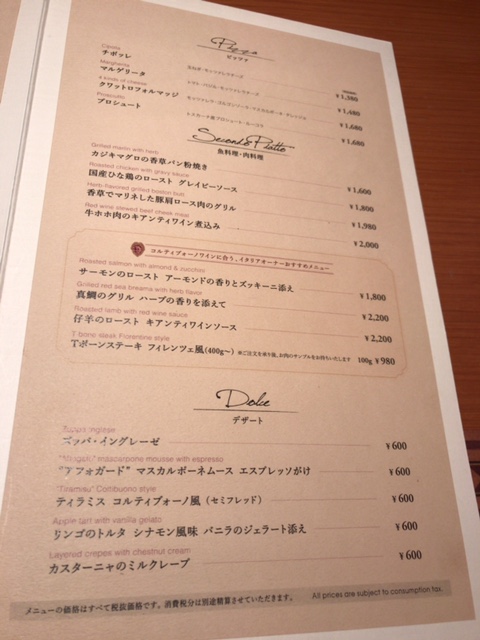 Pizza
ピッツァ
Cipolla
チポッレ
玉ねぎ・モッツァレラチーズ
¥1,380
Margherita
マルゲリータ
トマト・バジル・モッツァレラチーズ
¥1,480
4 kinds of cheese
クワットロフォルマッジ
モッツァレラ・ゴルゴンゾーラ・マスカルポーネ・チェンジョ
¥1,680
Prosciutto
プロシュート
トスカーナ産プロシュート・ルーコラ
¥1,680
Secondo Piatto
魚料理・肉料理
Grilled marlin with herb
カジキマグロの香草パン粉焼き
¥1,600
Roasted chicken with gravy sauce
国産ひな鶏のロースト グレイビーソース
¥1,800
Herb-flavored grilled boston butt
香草でマリネした豚肩ロース肉のグリル
¥1,980
Red wine stewed beef cheek meat
牛ホホ肉のキアンティワイン煮込み
¥2,000
コルティブォーノワインに合う、イタリアオーナーおすすめメニュー
Roasted salmon with almond & zucchini
サーモンのロースト アーモンドの香りとズッキーニ添え
¥1,800
Grilled red sea breama with herb flavor
真鯛のグリル ハーブの香りを添えて
¥2,200
Roasted lamb with red wine sauce
仔羊のロースト キアンティワインソース
¥2,200
T-bone steak Fiorentino style
Tボーンステーキ フィレンツェ風(400g〜) ※ご注文を承り後、お肉のサンプルをお持ちいたします 100g ¥980
Dolce
デザート
Zuppa inglese
ズッパ・イングレーゼ
¥600
mascarpone mousse with espresso
フォガード" マスカルポーネムース エスプレッソがけ
¥600
"Tiramisu" Coltibuono style
ティラミス コルティブォーノ風（セミフレッド）
¥600
Apple tart with vanilla gelato
リンゴのトルタ シナモン風味 バニラのジェラート添え
¥600
Layered crepes with chestnut cream
カスターニャのミルクレープ
¥600
メニューの価格はすべて税抜価格です。消費税分は別途精算させていただきます。 All prices are subject to consumption tax.